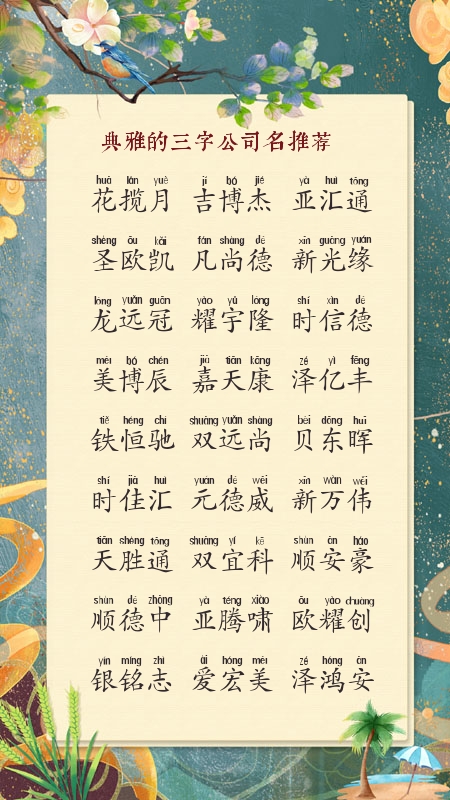 典雅的三字公司名推荐
huā lǎn yuè jí bó jié yà huì tōng
花揽月 吉博杰 亚汇通
shèng ōu kǎi fán shàng dé xīn guāng yuán
圣欧凯 凡尚德 新光缘
lóng yuǎn guān yào yǔ lóng shí xìn dé
龙远冠 耀宇隆 时信德
měi bó chén jiā tiān kāng zé yì fēng
美博辰 嘉天康 泽亿丰
tiě héng chí shuāng yuǎn shàng bèi dōng huī
铁恒驰 双远尚 贝东晖
shí jiā huì yuán dé wēi xīn wàn wěi
时佳汇 元德威 新万伟
tiān shèng tōng shuāng yí kē shùn ān háo
天胜通 双宜科 顺安豪
shùn dé zhōng yà téng xiào ōu yào chuàng
顺德中 亚腾啸 欧耀创
yín míng zhì ài hóng měi zé hóng ān
银铭志 爱宏美 泽鸿安